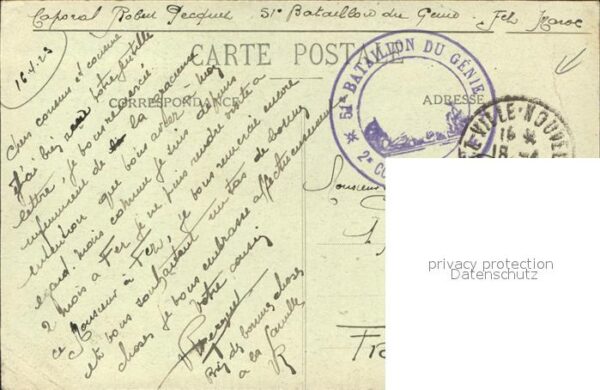 Caporal Robert Pecquet 51e Bataillon du Génie Fez Maroc
CARTE POSTALE
CORRESPONDANCE
ADRESSE
51e BATAILLON DU GÉNIE
* 2e CO
VILLE-NOUVELLE
16 *
18
16.4.23
Chers cousins et cousine
J'ai bien votre gentille
lettre, je vous remercie
infiniment de la gracieuse
intention que vous avez à mon
égard. mais comme je suis depuis
2 mois à Fez je ne puis rendre visite à
ce Monsieur à Fez, je vous remercie encore
et vous souhaitant un tas de bonnes
choses je vous embrasse affectueusement
votre cousin
Pecquet
Bien des bonnes choses
à la famille
R
Monsieur
Fra
privacy protection
Datenschutz